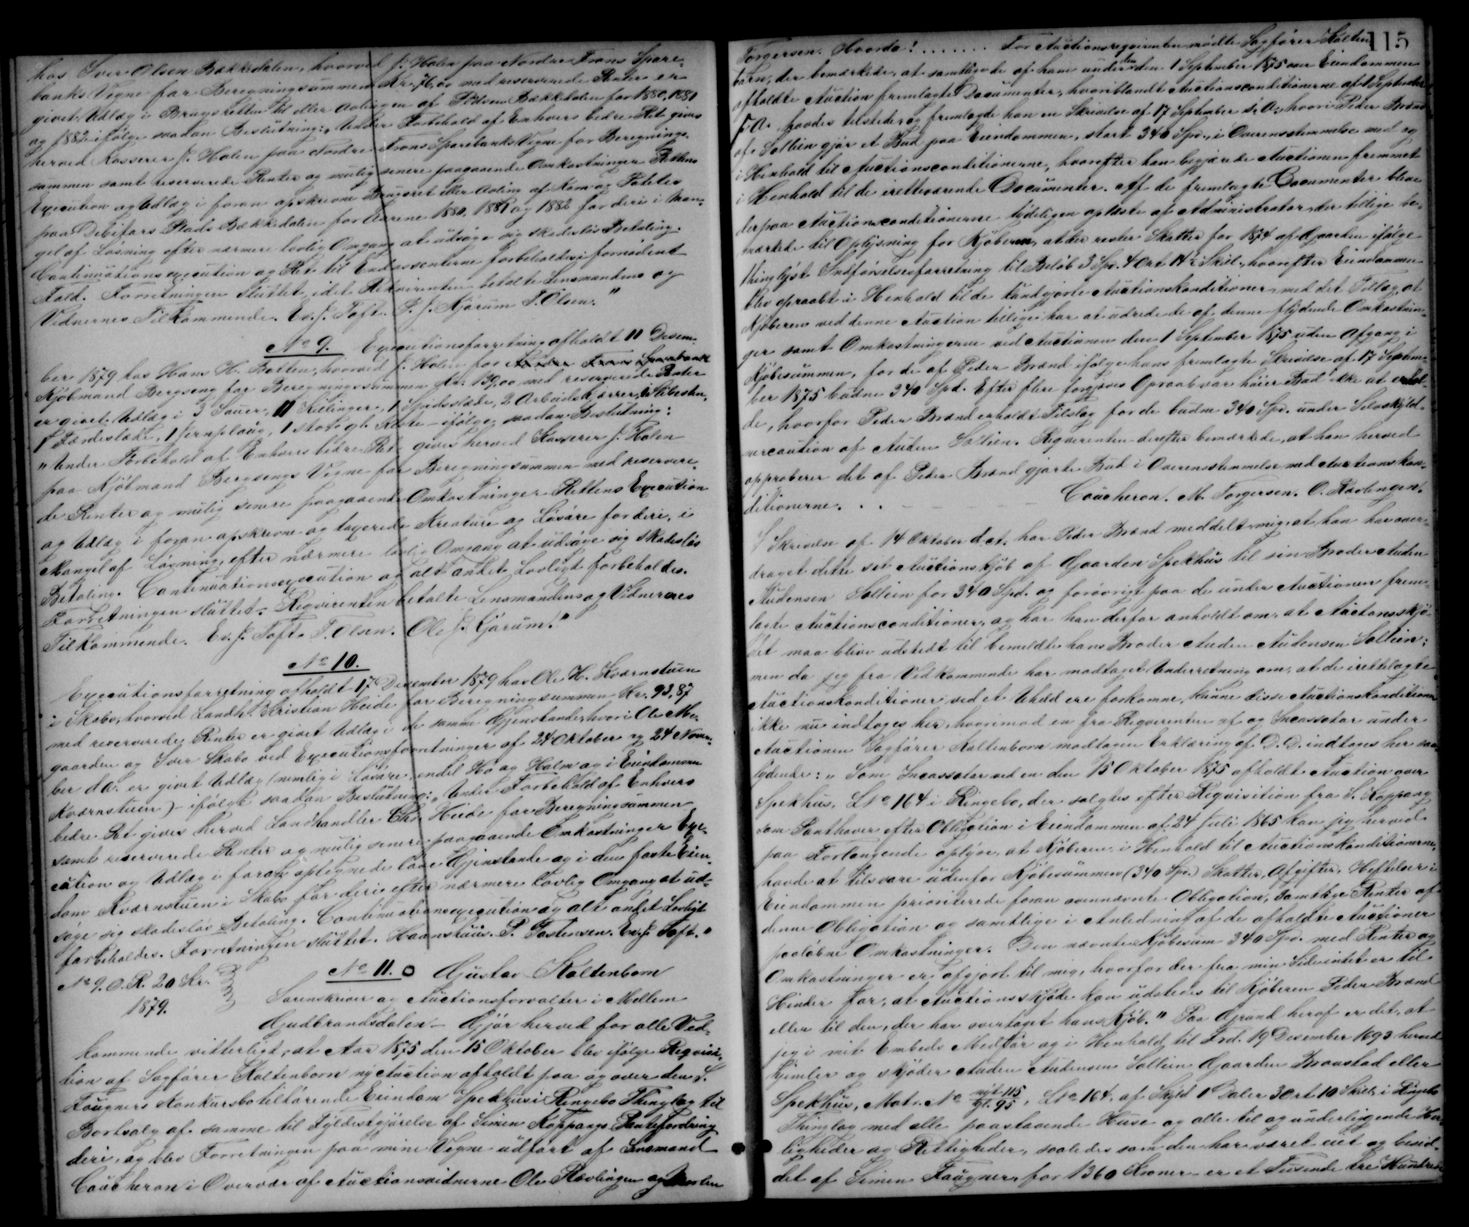 hos Iver Olsen Bakkedalen, hvorved J. Holen paa Nordre Frons Spare-
banks Vegne for Beregningssummen Kr. med reserverede Renter er
givet Udlæg i Brugsretten til eller Avlingen af Pladsen Bækkedalen for 1880, 1881
og 1882 ifølge saadan Beslutning: Under Forbehold af Enhvers bedre Ret gives
herved Kasserer J. Holen paa Nordre Frons Sparebanks Vegne for Beregnings-
summen samt reserverede Renter og mulig senere paagaaende Omkostninger Rettens
Execution og Udlæg i foran opskrevne Brugsret eller Avling af Korn og Poteter
paa Debitors Plads Bækkedalen for Aarene 1880, 1881 og 1882 for deri i Man-
gel af Løsning efter nærmere lovlig Omgang at udsøge sig skadesløs Betaling.
Continuationsexecution og Ret til Endossenterne forbeholdes i fornødent
Fald. Forretningen sluttet, idet Rekvirenten betalte Lensmandens og
Vidnernes Tilkommende. Ev. J. Toft. P. J. Kjorum J. Olsen."
No 9. Executionsforretning afholdt 11 Decem-
ber 1879 hos Hans H. Botten, hvorved J. Holen for Nordre Frons Sparebank
Kjøbmand Bergseng for Beregningssummen Kr. 139,00 med reserverede Renter
er givet Udlæg i 3 Sauer, 11 Killinger, 1 Spidsslæde, 2 Arbeidskærrer,
1 Lædeslæde, 1 Jernploug, 1 Stol og Kiste - ifølge saadan Beslutning:
"Under Forbehold af Enhvers bedre Ret gives herved Kasserer J. Holen
paa Kjøbmand Bergsengs Vegne for Beregningssummen med reservere-
de Renter og mulig senere paagaaende Omkostninger Rettens Execution
og Udlæg i foran opskrevne og taxerede Kreature og Løsøre for deri, i
Mangel af Løsning, efter nærmere lovlig Omgang at udsøge sig skadesløs
Betaling. Continuationsexecution og alt andet Lovligt forbeholdes.
Forretningen sluttet. Reqvirenten betalte Lensmandens og Vidnernes
Tilkommende. Ev. J. Toft. J. Olsen. Ole J. Kjorum."
No 10.
Executionsforretning afholdt 17 December 1879 hos Ole H. Kværnstuen
i Skabo, hvorved Landh. Kristian Heide for Beregningssummen Kr. 93,87
med reserverede Renter er givet Udlæg i de samme Gjenstande, hvori Ole
gaarden og Iver Skabo ved Executionsforretninger af 24 Oktober og 24 Novem-
ber d.A. er givet Udlæg (nemlig i Løsøre, endel Hø og Halm og i Eiendommen
Kværnstuen) ifølge saadan Beslutning: "Under Forbehold af Enhvers
bedre Ret gives herved Landhandler Chr. Heide for Beregningssummen
samt reserverede Renter og mulig senere paagaaende Omkostninger Exe-
cution og Udlæg i foran optegnede løse Gjenstande og i den faste Eien-
dom Kværnstuen i Skabo for deri efter nærmere lovlig Omgang at ud-
søge sig skadesløs Betaling. Continuationsexecution og alt andet Lovligt
forbeholdes. Forretningen sluttet. Haanstuus. P. Tostensen. Ev. J. Toft."
No 9. O. R. 20 Kr.
1879.
No 11. Gustav Kaltenborn
Sorenskriver og Auctionsforvalter i Mellem
Gudbrandsdalen - Gjør herved for alle Ved-
kommende vitterligt, at Aar 1875 den 15 Oktober blev ifølge Reqvisi-
tion af Sagfører Kaltenborn ny Auction afholdt paa og over den S.
Faugners Konkursbo tilhørende Eiendom Spekhus i Ringebo Thinglag til
Bortsalg af samme til Fyldestgjørelse af Simen Koppangs Pantefordring
deri, og blev Forretningen paa mine Vegne udført af Lensmand
Caucheron i Overvær af Auctionsvidnerne Ole Kavlingen og Morten
115
Torgersen. Hvorda! . . . . . . . For Auctionsreqvirenten mødte Sagfører Kalten-
born, der bemærkede, at samtlige de af ham under den 1 September 1875 over Eiendommen
afholdte Auction fremlagte Documenter, hvoriblandt Auctionsconditionerne af 1 September
s. A. havdes tilstede, og fremlagde han en Skrivelse af 17 September d. A. hvori Peder Brænd
af Sollien gjør et Bud paa Eiendommen, stort 340 Spd., i Overensstemmelse med og
i Henhold til Auctionsconditionerne, hvorefter han begjærede Auctionen fremmet
i Henhold til de irettelagte Documenter. Af de fremlagte Documenter blev
derpaa Auctionsconditionerne tydeligen oplæste af Administrator, der tillige be-
mærkede til Oplysning for Kjøberen, at der rester Skatter for 1874 af Gaarden ifølge
thinglyst Indførselsforretning til Beløb 3 Sp. 4 Ort 14 Skill., hvorefter Eiendommen
blev opraabt i Henhold til de kundgjorte Auctionskonditioner med det Tillæg, at
Kjøberen ved denne Auction tillige har at udrede de af denne flydende Omkostnin-
ger samt Omkostningerne ved Auctionen den 1 September 1875 uden Afgang i
Kjøbesummen, for de af Peder Brænd ifølge hans fremlagte Skrivelse af 17 Septem-
ber 1875 budne 340 Spd. Efter flere forgjæves Opraab var høiere Bud ikke at erhol-
de, hvorfor Peder Brænd erholdt Tilslag for de budne 340 Spd. under Selvskyld-
nercaution af Auden Sollien. Reqvirenten derefter bemærkede, at han herved
approberer det af Peder Brænd gjorte Bud i Overensstemmelse med Auctionskon-
ditionerne. . . Caucheron. M. Torgersen. O. Kavlingen.
I Skrivelse af 14 Oktober d.A. har Peder Brænd meddelt mig, at han har over-
draget dette sit Auctionskjøb af Gaarden Spekhus til sin Broder Auden
Audensen Sollien for 340 Spd. og forøvrigt paa de under Auctionen frem-
lagte Auctionsconditioner, og har han derfor anholdt om, at Auctionsskjø-
det maa blive udstedt til bemeldte hans Broder Auden Audensen Sollien;
men da jeg fra Vedkommende har modtaget Underretning om, at de irettelagte
Auctionskonditioner ved et Uheld ere forkomne, kunne disse Auctionskonditioner
ikke nu indtages her, hvorimod en fra Reqvirenten af og Incassator under
Auctionen Sagfører Kaltenborn modtagen Erklæring af D.D. indtages her saa-
lydende: "Som Incassator ved en den 15 Oktober 1875 afholdt Auction over
Spekhus, L.No 164 i Ringebo, der solgtes efter Reqvisition fra S. Koppang
som Panthaver efter Obligation i Eiendommen af 24 Juli 1865 kan jeg herved
paa Forlangende oplyse, at Kjøberen i Henhold til Auctionskonditionerne
havde at tilsvare udenfor Kjøbesummen (340 Spd.) Skatter, Afgifter, Heftelser i
Eiendommen prioriterede foran ovennævnte Obligation, samtlige Renter af
denne Obligation og samtlige i Anledning af de afholdte Auctioner
paaløbne Omkostninger. Den nævnte Kjøbesum 340 Spd. med Renter og
Omkostninger er afgjort til mig, hvorfor der fra min Side intet er til
Hinder for, at Auctionsskjøde kan udstedes til Kjøberen Peder Brænd
eller til den, der har overtaget hans Kjøb." Paa Grund heraf er det, at
jeg i mit Embeds Medfør og i Henhold til Frd. 19 December 1693 herved
hjemler og skjøder Auden Audensen Sollien Gaarden Braastad eller
Spekhus, Mat. No nyt 115 gl. 95, L.No 164 af Skyld 1 Daler 3 Ort 10 Skill. i Ringebo
Thinglag med alle paastaaende Huse og alle til og underliggende Her-
ligheder og Rettigheder, saaledes som den har været eiet og besid-
det af Simen Faugner, for 1360 Kroner - er et Tusinde tre Hundrede